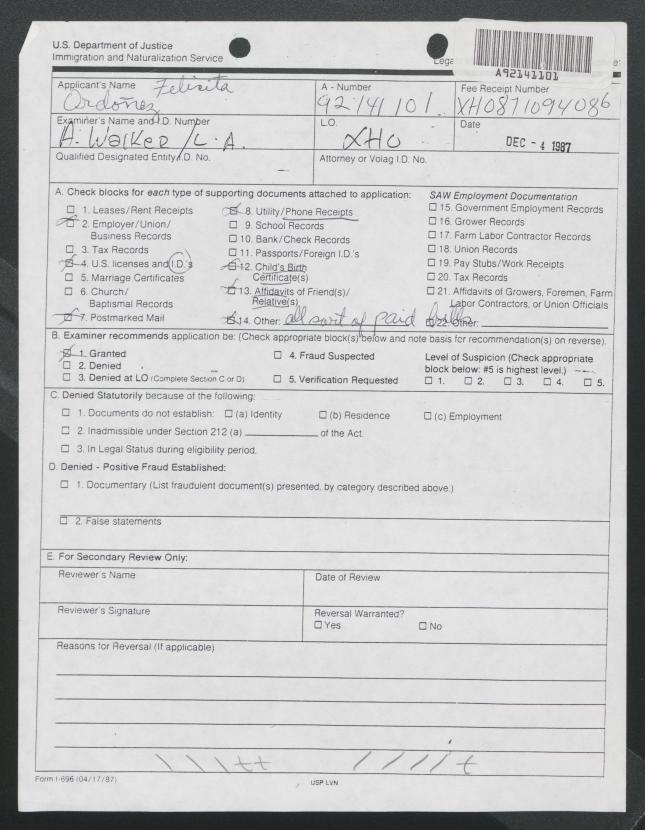 U.S. Department of Justice
Immigration and Naturalization Service
A92141101
Applicant's Name Felicita
Ordoñez
A - Number
92 141 101
Fee Receipt Number
XHO871094086
Examiner's Name and I.D. Number
A. Walker / L.A.
LO.
XHO
Date
DEC - 4 1987
Qualified Designated Entity I.D. No.
Attorney or Volag I.D. No.
A. Check blocks for each type of supporting documents attached to application:
☐ 1. Leases/Rent Receipts
☒ 2. Employer/Union/
Business Records
☐ 3. Tax Records
☒ 4. U.S. licenses and I.D.'s
☐ 5. Marriage Certificates
☐ 6. Church/
Baptismal Records
☒ 7. Postmarked Mail
☒ 8. Utility/Phone Receipts
☐ 9. School Records
☐ 10. Bank/Check Records
☐ 11. Passports/Foreign I.D.'s
☒ 12. Child's Birth
Certificate(s)
☒ 13. Affidavits of Friend(s)/
Relative(s)
☒ 14. Other: all sort of paid bills
SAW Employment Documentation
☐ 15. Government Employment Records
☐ 16. Grower Records
☐ 17. Farm Labor Contractor Records
☐ 18. Union Records
☐ 19. Pay Stubs/Work Receipts
☐ 20. Tax Records
☐ 21. Affidavits of Growers, Foremen, Farm
Labor Contractors, or Union Officials
☐ 22. Other:
B. Examiner recommends application be: (Check appropriate block(s) below and note basis for recommendation(s) on reverse).
☒ 1. Granted
☐ 2. Denied
☐ 3. Denied at LO (Complete Section C or D)
☐ 4. Fraud Suspected
☐ 5. Verification Requested
Level of Suspicion (Check appropriate
block below: #5 is highest level.)
☐ 1. ☐ 2. ☐ 3. ☐ 4. ☐ 5.
C. Denied Statutorily because of the following:
☐ 1. Documents do not establish: ☐ (a) Identity ☐ (b) Residence ☐ (c) Employment
☐ 2. Inadmissible under Section 212 (a) ____ of the Act.
☐ 3. In Legal Status during eligibility period.
D. Denied - Positive Fraud Established:
☐ 1. Documentary (List fraudulent document(s) presented, by category described above.)
☐ 2. False statements
E. For Secondary Review Only:
Reviewer's Name
Date of Review
Reviewer's Signature
Reversal Warranted?
☐ Yes ☐ No
Reasons for Reversal (If applicable)
Form I-696 (04/17/87)
USP LVN